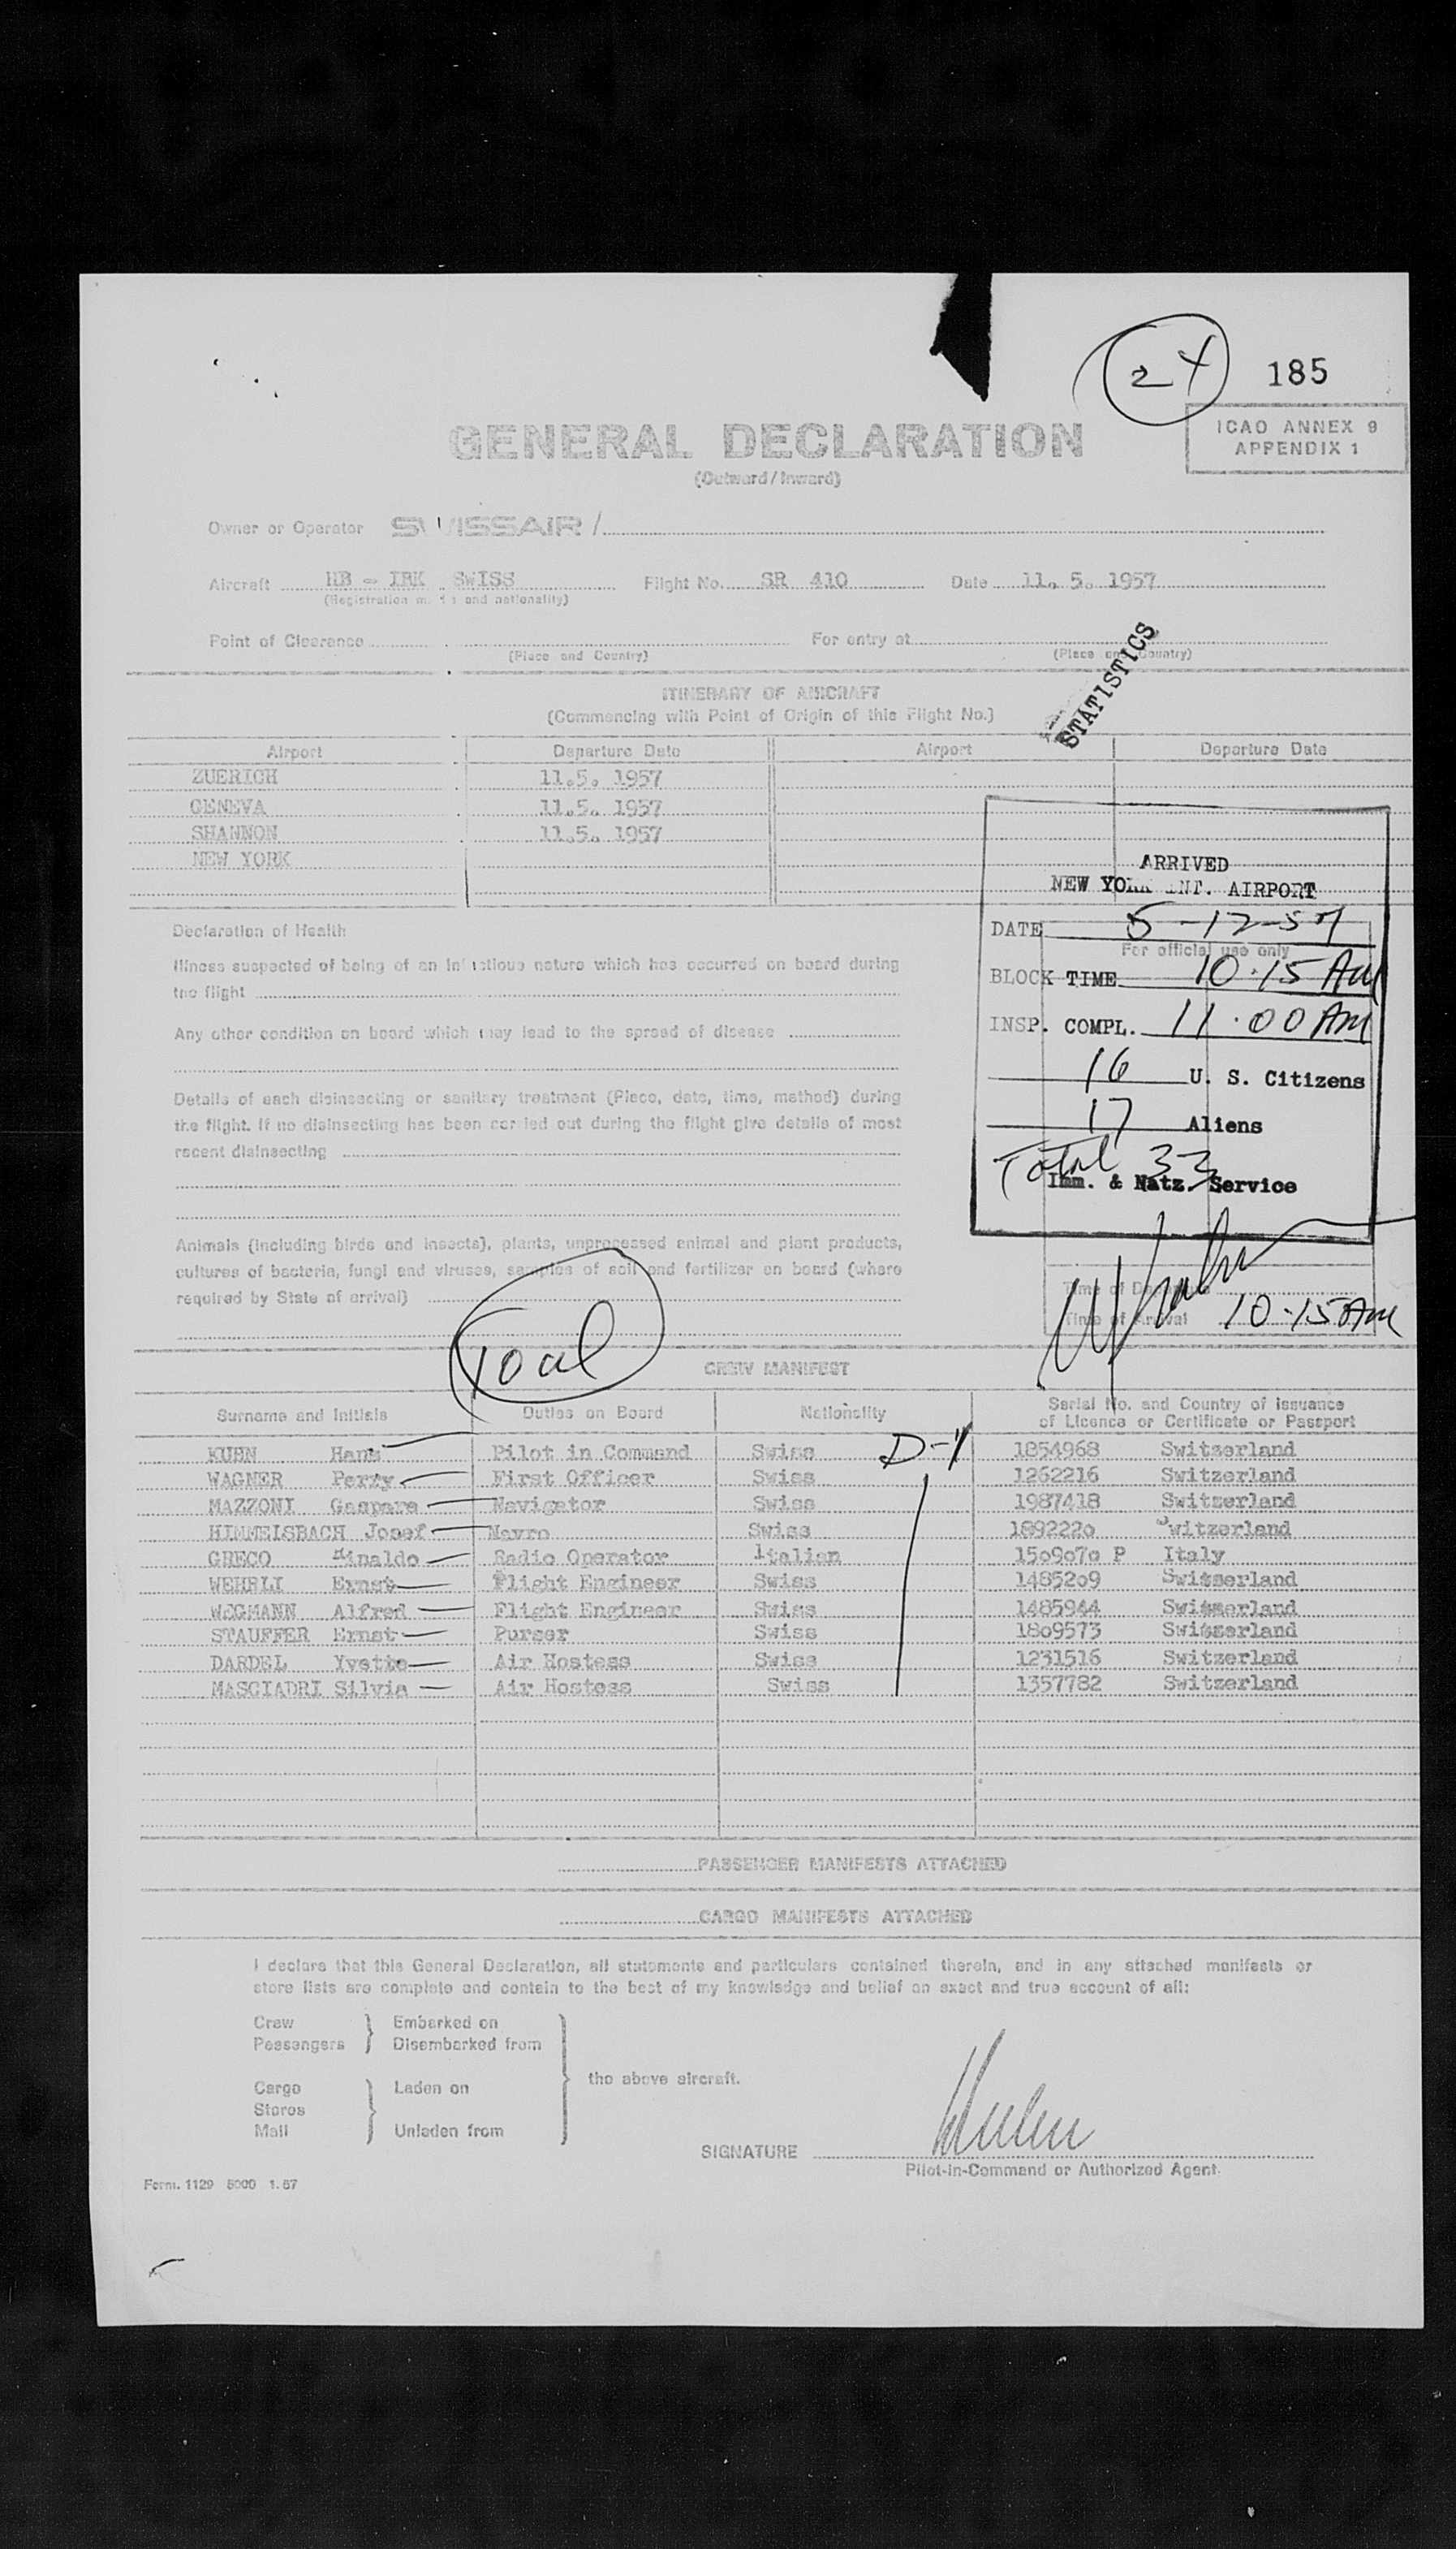 24 185
ICAO ANNEX 9
APPENDIX 1
GENERAL DECLARATION
(Outward/Inward)
Owner or Operator SWISSAIR /
Aircraft HB - IBK SWISS Flight No. SR 410 Date 11. 5. 1957
(Registration and nationality)
Point of Clearance For entry at
(Place and Country) (Place and Country)
STATISTICS
ITINERARY OF AIRCRAFT
(Commencing with Point of Origin of this Flight No.)
Airport Departure Date Airport Departure Date
ZUERICH 11.5. 1957
GENEVA 11.5. 1957
SHANNON 11.5. 1957
NEW YORK
ARRIVED
NEW YORK INT. AIRPORT
DATE 5-12-57
For official use only
BLOCK TIME 10:15 AM
INSP. COMPL. 11:00 AM
16 U. S. Citizens
17 Aliens
Total 33
Imm. & Natz. Service
Declaration of Health
Illness suspected of being of an infectious nature which has occurred on board during
the flight
Any other condition on board which may lead to the spread of disease
Details of each disinsecting or sanitary treatment (Place, date, time, method) during
the flight. If no disinsecting has been carried out during the flight give details of most
recent disinsecting
Animals (including birds and insects), plants, unprocessed animal and plant products,
cultures of bacteria, fungi and viruses, samples of soil and fertilizer on board (where
required by State of arrival)
Time of Departure
Time of Arrival 10:15 AM
CREW MANIFEST
Surname and Initials Duties on Board Nationality Serial No. and Country of issuance
of Licence or Certificate or Passport
D-1
KUHN Hans Pilot in Command Swiss 1854968 Switzerland
WAGNER Perry First Officer Swiss 1262216 Switzerland
MAZZONI Gaspare Navigator Swiss 1987418 Switzerland
HIMMEISBACH Josef Navro Swiss 1892220 Switzerland
GRECO Rinaldo Radio Operator Italian 1509070 P Italy
WEHRLI Ernst Flight Engineer Swiss 1485209 Switzerland
WEGMANN Alfred Flight Engineer Swiss 1485944 Switzerland
STAUFFER Ernst Purser Swiss 1809573 Switzerland
DARDEL Yvette Air Hostess Swiss 1231516 Switzerland
MASCIADRI Silvia Air Hostess Swiss 1357782 Switzerland
PASSENGER MANIFESTS ATTACHED
CARGO MANIFESTS ATTACHED
I declare that this General Declaration, all statements and particulars contained therein, and in any attached manifests or
store lists are complete and contain to the best of my knowledge and belief an exact and true account of all:
Crew Embarked on
Passengers Disembarked from
the above aircraft.
Cargo Laden on
Stores
Mail Unladen from
SIGNATURE
Pilot-in-Command or Authorized Agent.
Form. 1129 5000 1.57